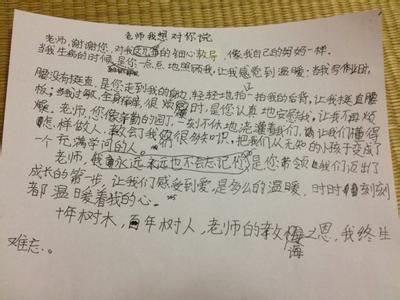 老师我想对你说
老师，谢谢您，对我的细心教导，像我自己的妈妈一样。
当我生病的时候，是你一点点地照顾我，让我感觉到温暖；当我写作业时，
腰没有挺直，是您走到我的身边，轻轻地拍一拍我的后背，让我挺直腰
板；当我过敏，全身痒，很烦时，是您认真地安慰我，让我不再烦
燥。老师，您像辛勤的园丁，一刻不休地浇灌着我们，让我们懂得
怎样做人，教会了我很多知识，把我们从无知的小孩子变成了
一个充满学问的人。
老师，我永远永远也不会忘记你，是您带领我们迈出了
成长的第一步，让我们感受到爱，是多么的温暖，时时刻刻
都温日爱着我的心。
十年树木，百年树人，老师的教诲之恩，我终生
难忘。